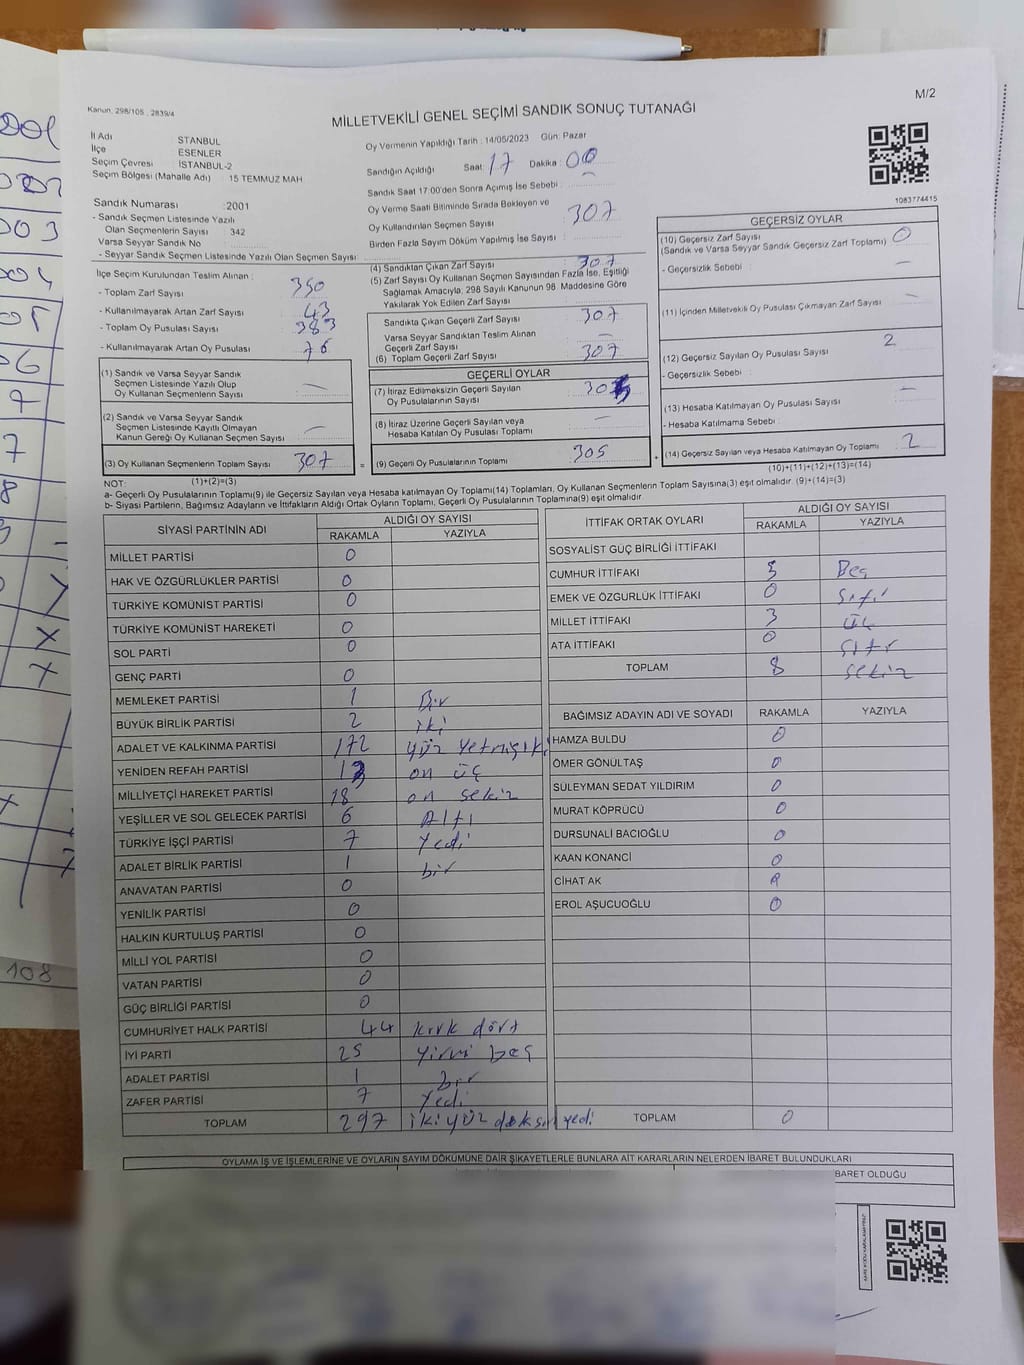 M/2
Kanun: 298/105 , 2839/4
MİLLETVEKİLİ GENEL SEÇİMİ SANDIK SONUÇ TUTANAĞI
İl Adı STANBUL
İlçe ESENLER
Seçim Çevresi İSTANBUL-2
Seçim Bölgesi (Mahalle Adı) 15 TEMMUZ MAH
Sandık Numarası : 2001
- Sandık Seçmen Listesinde Yazılı
Olan Seçmenlerin Sayısı : 342
Varsa Seyyar Sandık No :
- Seyyar Sandık Seçmen Listesinde Yazılı Olan Seçmen Sayısı:
Oy Vermenin Yapıldığı Tarih : 14/05/2023 Gün: Pazar
Sandığın Açıldığı Saat: 17 Dakika : 00
Sandık Saat 17:00'den Sonra Açımış İse Sebebi : —
Oy Verme Saati Bitiminde Sırada Bekleyen ve
Oy Kullandırılan Seçmen Sayısı : 307
Birden Fazla Sayım Döküm Yapılmış İse Sayısı :
1083774415
İlçe Seçim Kurulundan Teslim Alınan :
- Toplam Zarf Sayısı 350
- Kullanılmayarak Artan Zarf Sayısı : 43
- Toplam Oy Pusulası Sayısı : 383
- Kullanılmayarak Artan Oy Pusulası : 76
(1) Sandık ve Varsa Seyyar Sandık
Seçmen Listesinde Yazılı Olup
Oy Kullanan Seçmenlerin Sayısı : —
(2) Sandık ve Varsa Seyyar Sandık
Seçmen Listesinde Kayıtlı Olmayan
Kanun Gereği Oy Kullanan Seçmen Sayısı : —
(3) Oy Kullanan Seçmenlerin Toplam Sayısı : 307
(1)+(2)=(3)
(4) Sandıktan Çıkan Zarf Sayısı : 307
(5) Zarf Sayısı Oy Kullanan Seçmen Sayısından Fazla İse, Eşitliği
Sağlamak Amacıyla, 298 Sayılı Kanunun 98. Maddesine Göre
Yakılarak Yok Edilen Zarf Sayısı :
Sandıkta Çıkan Geçerli Zarf Sayısı : 307
Varsa Seyyar Sandıktan Teslim Alınan
Geçerli Zarf Sayısı : —
(6) Toplam Geçerli Zarf Sayısı : 307
GEÇERLİ OYLAR
(7) İtiraz Edilmeksizin Geçerli Sayılan
Oy Pusulalarının Sayısı : 305
(8) İtiraz Üzerine Geçerli Sayılan veya
Hesaba Katılan Oy Pusulası Toplamı : —
= (9) Geçerli Oy Pusulalarının Toplamı : 305
GEÇERSİZ OYLAR
(10) Geçersiz Zarf Sayısı : 0
(Sandık ve Varsa Seyyar Sandık Geçersiz Zarf Toplamı)
- Geçersizlik Sebebi : —
(11) İçinden Milletvekili Oy Pusulası Çıkmayan Zarf Sayısı : —
(12) Geçersiz Sayılan Oy Pusulası Sayısı : 2
- Geçersizlik Sebebi :
(13) Hesaba Katılmayan Oy Pusulası Sayısı : —
- Hesaba Katılmama Sebebi :
+ (14) Geçersiz Sayılan veya Hesaba Katılmayan Oy Toplamı : 2
(10)+(11)+(12)+(13)=(14)
NOT:
a- Geçerli Oy Pusulalarının Toplamı(9) ile Geçersiz Sayılan veya Hesaba katılmayan Oy Toplamı(14) Toplamları, Oy Kullanan Seçmenlerin Toplam Sayısına(3) eşit olmalıdır. (9)+(14)=(3)
b- Siyasi Partilerin, Bağımsız Adayların ve İttifakların Aldığı Ortak Oyların Toplamı, Geçerli Oy Pusulalarının Toplamına(9) eşit olmalıdır.
SİYASİ PARTİNİN ADI ALDIĞI OY SAYISI
RAKAMLA YAZIYLA
MİLLET PARTİSİ 0
HAK VE ÖZGÜRLÜKLER PARTİSİ 0
TÜRKİYE KOMÜNİST PARTİSİ 0
TÜRKİYE KOMÜNİST HAREKETİ 0
SOL PARTİ 0
GENÇ PARTİ 0
MEMLEKET PARTİSİ 1 Bir
BÜYÜK BİRLİK PARTİSİ 2 iki
ADALET VE KALKINMA PARTİSİ 172 yüz yetmişiki
YENİDEN REFAH PARTİSİ 13 on üç
MİLLİYETÇİ HAREKET PARTİSİ 18 on sekiz
YEŞİLLER VE SOL GELECEK PARTİSİ 6 Altı
TÜRKİYE İŞÇİ PARTİSİ 7 Yedi
ADALET BİRLİK PARTİSİ 1 bir
ANAVATAN PARTİSİ 0
YENİLİK PARTİSİ 0
HALKIN KURTULUŞ PARTİSİ 0
MİLLİ YOL PARTİSİ 0
VATAN PARTİSİ 0
GÜÇ BİRLİĞİ PARTİSİ 0
CUMHURİYET HALK PARTİSİ 44 kırk dört
İYİ PARTİ 25 Yirmi beş
ADALET PARTİSİ 1 bir
ZAFER PARTİSİ 7 Yedi
TOPLAM 297 ikiyüz doksan yedi
İTTİFAK ORTAK OYLARI ALDIĞI OY SAYISI
RAKAMLA YAZIYLA
SOSYALİST GÜÇ BİRLİĞİ İTTİFAKI
CUMHUR İTTİFAKI 5 Beş
EMEK VE ÖZGÜRLÜK İTTİFAKI 0 Sıfır
MİLLET İTTİFAKI 3 üç
ATA İTTİFAKI 0 Sıfır
TOPLAM 8 sekiz
BAĞIMSIZ ADAYIN ADI VE SOYADI RAKAMLA YAZIYLA
HAMZA BULDU 0
ÖMER GÖNÜLTAŞ 0
SÜLEYMAN SEDAT YILDIRIM 0
MURAT KÖPRÜCÜ 0
DURSUNALİ BACIOĞLU 0
KAAN KONANCİ 0
CİHAT AK 0
EROL AŞUCUOĞLU 0
TOPLAM 0
OYLAMA İŞ VE İŞLEMLERİNE VE OYLARIN SAYIM DÖKÜMÜNE DAİR ŞİKAYETLERLE BUNLARA AİT KARARLARIN NELERDEN İBARET BULUNDUKLARI
BARET OLDUĞU
108